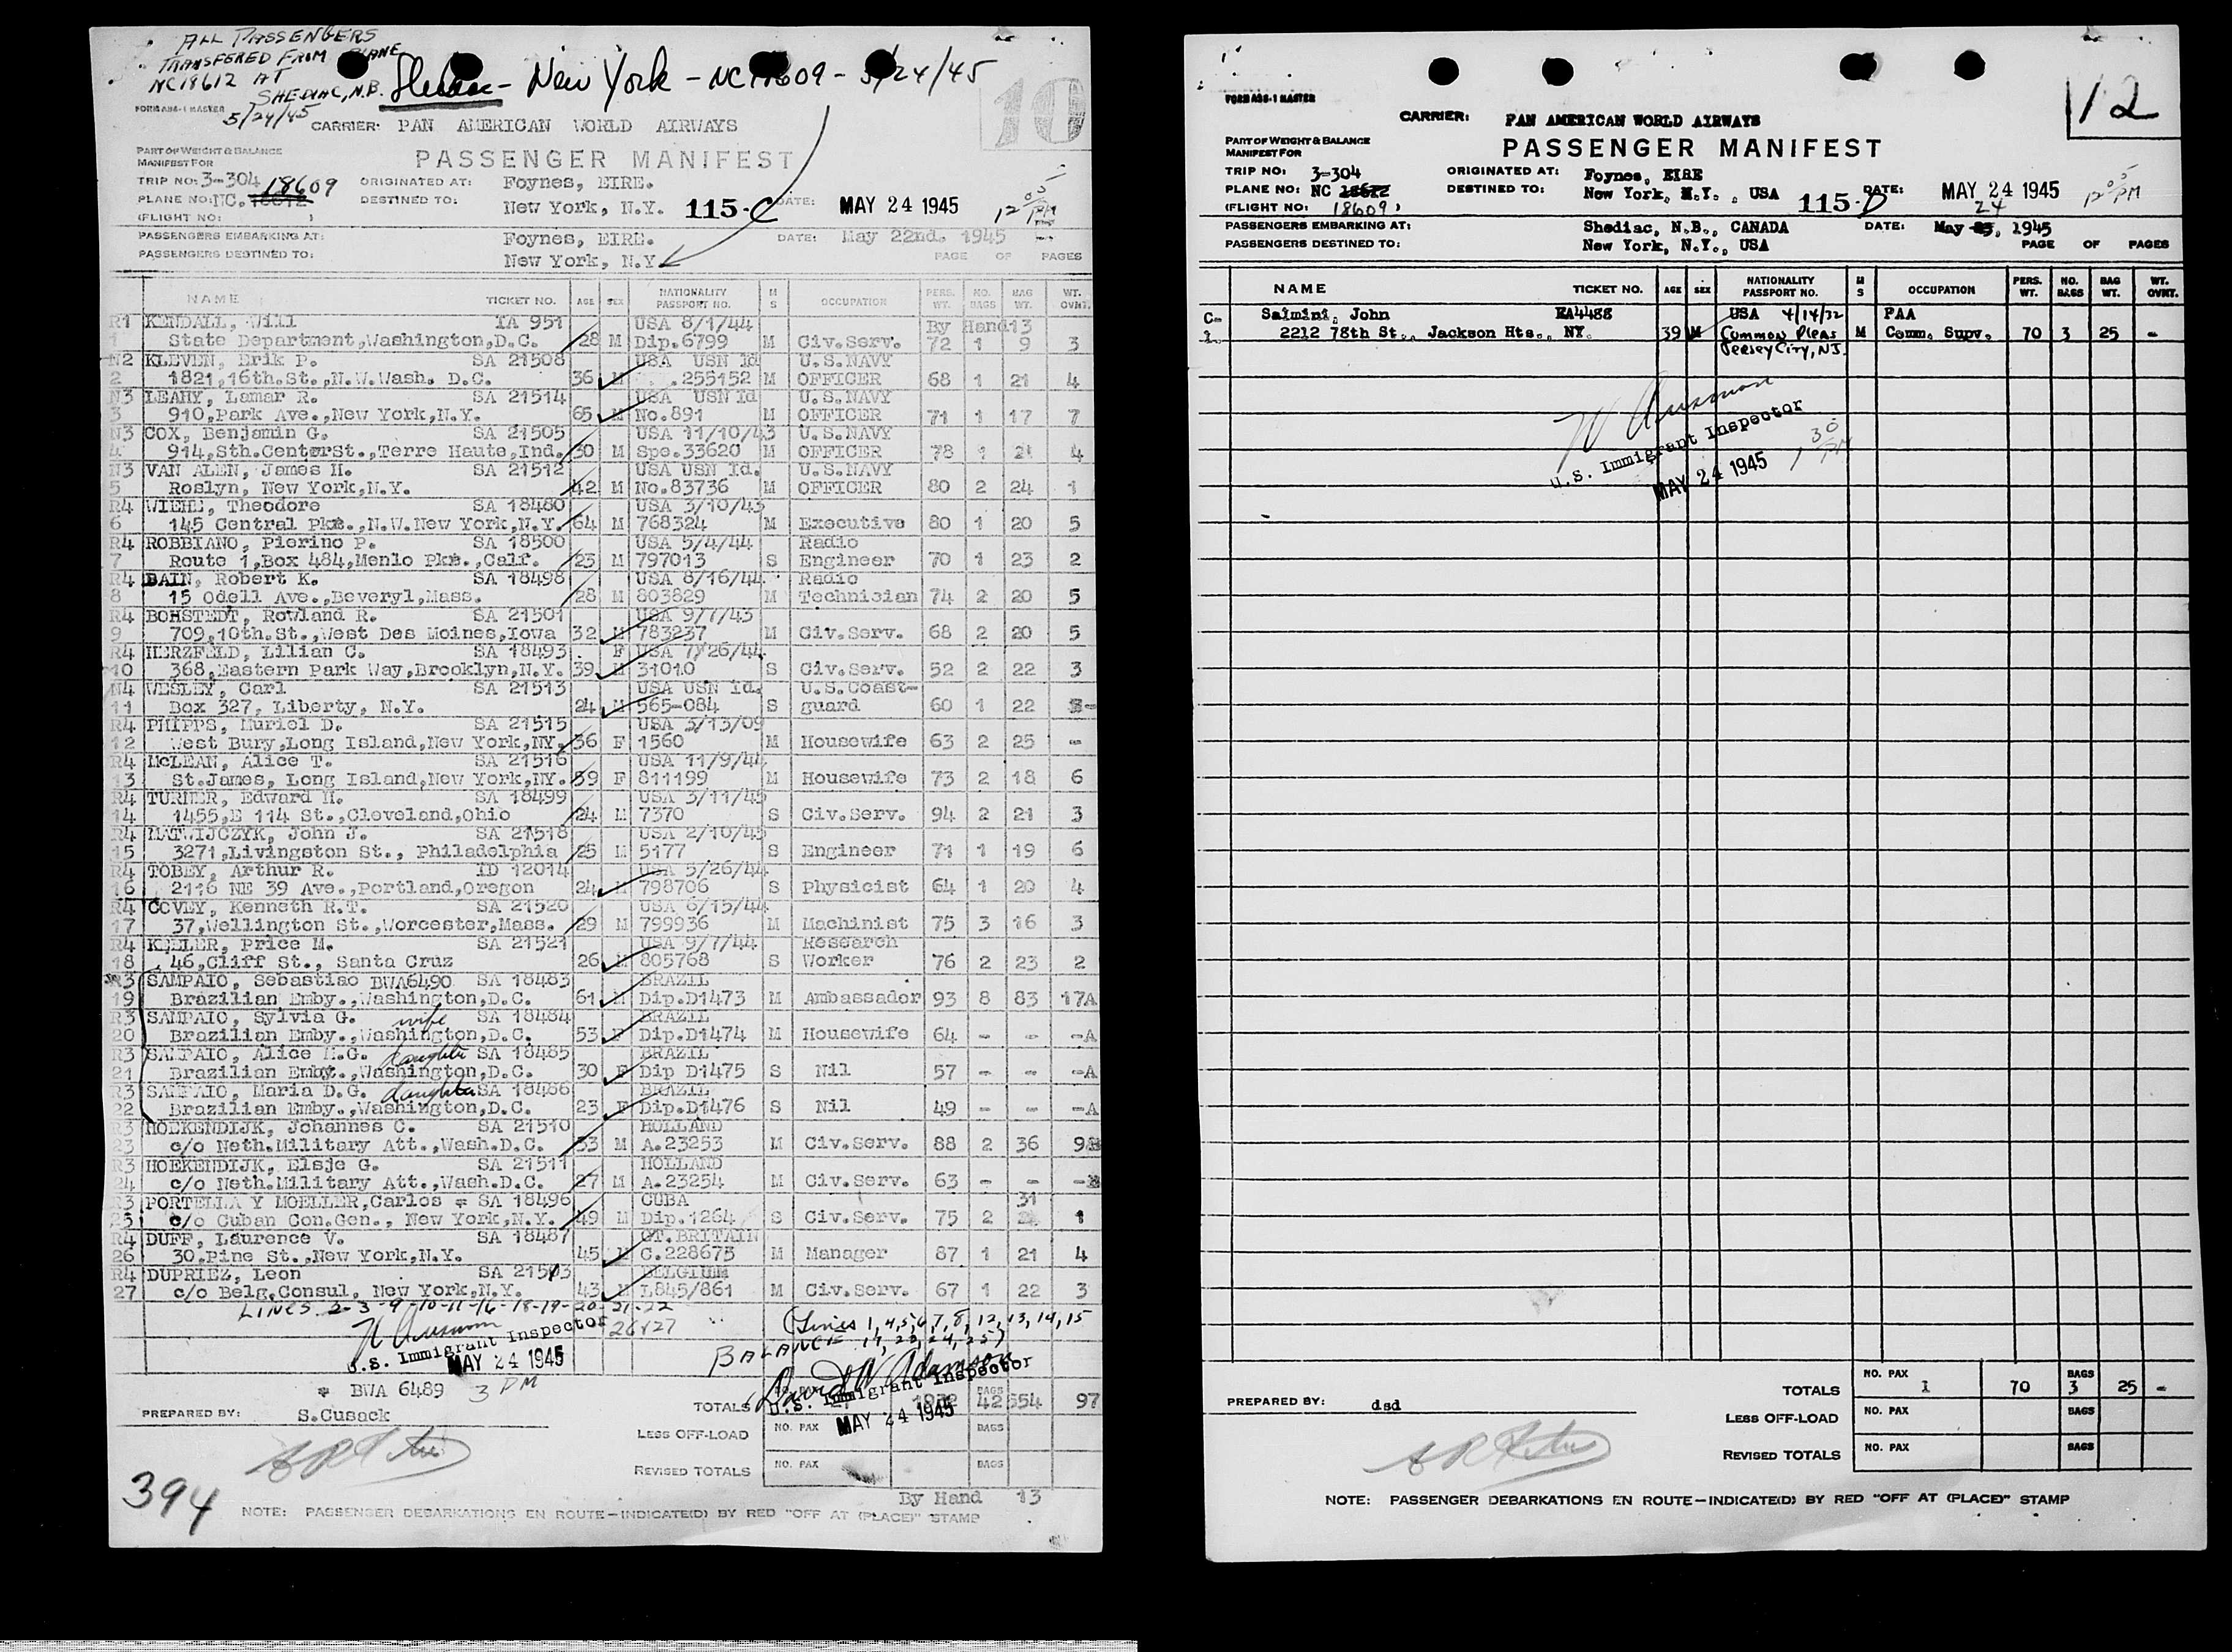 ALL PASSENGERS
TRANSFERED FROM PLANE
NC18612 AT
SHEDIAC, N.B.
5/24/45
New York - NC18609 - 5/24/45
10
FORM ABS-1 MASTER
CARRIER: PAN AMERICAN WORLD AIRWAYS
PART OF WEIGHT & BALANCE
MANIFEST FOR
PASSENGER MANIFEST
TRIP NO: 3-304
ORIGINATED AT: Foynes, EIRE.
PLANE NO: NC. 18612 18609
DESTINED TO: New York, N.Y. 115-C DATE: MAY 24 1945 12 05 PM
(FLIGHT NO: )
PASSENGERS EMBARKING AT: Foynes, EIRE. DATE: May 22nd. 1945
PASSENGERS DESTINED TO: New York, N.Y. PAGE OF PAGES
NAME TICKET NO. AGE SEX NATIONALITY PASSPORT NO. M S OCCUPATION PERS. WT. NO. BAGS BAG WT. WT. OVNT.
R1 KENDALL, Will IA 951 USA 8/1/44 By Hand 13
1 State Department,Washington,D.C. 28 M Dip.6799 M Civ.Serv. 72 1 9 3
N2 KLEVEN, Erik P. SA 21508 USA USN Id U.S.NAVY
2 1821,16th.St.,N.W.Wash. D.C. 36 M .255152 M OFFICER 68 1 21 4
N3 LEAHY, Lamar R. SA 21514 USA USN Id U.S.NAVY
3 910,Park Ave.,New York,N.Y. 65 M No.891 M OFFICER 71 1 17 7
N3 COX, Benjamin G. SA 21505 USA 11/10/43 U.S.NAVY
4 914,Sth.CenterSt.,Terre Haute,Ind. 30 M Spe.33620 M OFFICER 78 1 21 4
N3 VAN ALEN, James H. SA 21512 USA USN Id. U.S.NAVY
5 Roslyn, New York,N.Y. 42 M No.83736 M OFFICER 80 2 24 1
R4 WIEHE, Theodore SA 18480 USA 3/10/43
6 145 Central Pke.,N.W.New York,N.Y. 64 M 768324 M Executive 80 1 20 5
R4 ROBBIANO, Pierino P. SA 18500 USA 5/4/44 Radio
7 Route 1,Box 484,Menlo Pke.,Calf. 23 M 797013 S Engineer 70 1 23 2
R4 BAIN, Robert K. SA 18498 USA 8/16/44 Radio
8 15 Odell Ave.,Beveryl,Mass. 28 M 803829 M Technician 74 2 20 5
R4 BOHSTEDT, Rowland R. SA 21501 USA 9/7/43
9 709,10th.St.,West Des Moines,Iowa 32 M 783237 M Civ.Serv. 68 2 20 5
R4 HERZFELD, Lilian C. SA 18493 F USA 7/26/44
10 368,Eastern Park Way,Brooklyn,N.Y. 39 M 31010 S Civ.Serv. 52 2 22 3
N4 WESLEY, Carl SA 21513 USA USN Id. U.S.Coast-
11 Box 327, Liberty, N.Y. 24 M 565-084 S guard 60 1 22
R4 PHIPPS, Muriel D. SA 21515 USA 3/13/09
12 West Bury,Long Island,New York,NY. 36 F 1560 M Housewife 63 2 25 -
R4 McLEAN, Alice T. SA 21516 USA 11/9/44
13 St.James, Long Island,New York,NY. 59 F 811199 M Housewife 73 2 18 6
R4 TURNER, Edward H. SA 18499 USA 3/11/45
14 1455,E 114 St.,Cleveland,Ohio 24 M 7370 S Civ.Serv. 94 2 21 3
R4 MATWIJCZYK, John J. SA 21518 USA 2/10/45
15 3271,Livingston St., Philadelphia 25 M 5177 S Engineer 71 1 19 6
R4 TOBEY, Arthur R. ID 12014 USA 5/26/44
16 2116 NE 39 Ave.,Portland,Oregon 24 M 798706 S Physicist 64 1 20 4
R4 COVEY, Kenneth R.T. SA 21520 USA 6/15/44
17 37,Wellington St.,Worcester,Mass. 29 M 799936 M Machinist 75 3 16 3
R4 KEELER, Price M. SA 21521 USA 9/7/44 Research
18 46,Cliff St., Santa Cruz 26 M 805768 S Worker 76 2 23 2
R3 SAMPAIO, Sebastiao BWA6490 SA 18483 BRAZIL
19 Brazilian Emby.,Washington,D.C. 61 M Dip.D1473 M Ambassador 93 8 83 17A
R3 SAMPAIO, Sylvia G. wife SA 18484 BRAZIL
20 Brazilian Emby.,Washington,D.C. 53 F Dip.D1474 M Housewife 64 - - -A
R3 SAMPAIO, Alice M.G. daughter SA 18485 BRAZIL
21 Brazilian Emby.,Washington,D.C. 30 F Dip D1475 S Nil 57 - - -A
R3 SAMPAIO, Maria D.G. daughter SA 18486 BRAZIL
22 Brazilian Emby.,Washington,D.C. 23 F Dip.D1476 S Nil 49 - - -A
R3 HOEKENDIJK, Johannes C. SA 21510 HOLLAND
23 c/o Neth.Military Att.,Wash.D.C. 33 M A.23253 M Civ.Serv. 88 2 36 9B
R3 HOEKENDIJK, Elsje G. SA 21511 HOLLAND
24 c/o Neth.Military Att.,Wash.D.C. 27 M A.23254 M Civ.Serv. 63 - - -B
R3 PORTELLA Y MOELLER,Carlos * SA 18496 CUBA 31
25 c/o Cuban Con.Gen., New York,N.Y. 49 M Dip.1264 S Civ.Serv. 75 2 1
R4 DUFF, Laurence V. SA 18487 GT.BRITAIN
26 30.Pine St.,New York,N.Y. 45 M C.228675 M Manager 87 1 21 4
R4 DUPRIEZ, Leon SA 21503 BELGIUM
27 c/o Belg.Consul, New York,N.Y. 43 M L845/861 M Civ.Serv. 67 1 22 3
LINES 2-3-9-10-11-16-18-19-20-21-22
26 & 27
(Lines 1,4,5,6,7,8,12,13,14,15
BALANCE 17, 23, 24, 25)
U.S. Immigrant Inspector
MAY 24 1945
3 PM
David W Adamson
U.S. Immigrant Inspector
MAY 24 1945
* BWA 6489
TOTALS 42 554 97
PREPARED BY: S.Cusack
LESS OFF-LOAD NO. PAX BAGS
REVISED TOTALS NO. PAX BAGS
By Hand 13
394
NOTE: PASSENGER DEBARKATIONS EN ROUTE—INDICATE(D) BY RED "OFF AT (PLACE)" STAMP
12
FORM ABS-1 MASTER
CARRIER: PAN AMERICAN WORLD AIRWAYS
PART OF WEIGHT & BALANCE
MANIFEST FOR
PASSENGER MANIFEST
TRIP NO: 3-304
ORIGINATED AT: Foynes, EIRE
PLANE NO: NC 18612
DESTINED TO: New York, N.Y., USA 115-D DATE: MAY 24 1945 12 05 PM
(FLIGHT NO: 18609)
24
PASSENGERS EMBARKING AT: Shediac, N.B., CANADA DATE: May 23, 1945
PASSENGERS DESTINED TO: New York, N.Y., USA PAGE OF PAGES
NAME TICKET NO. AGE SEX NATIONALITY PASSPORT NO. M S OCCUPATION PERS. WT. NO. BAGS BAG WT. WT. OVNT.
C- Salmini, John EA4488 USA 4/14/32 PAA
1. 2212 78th St., Jackson Hts., NY. 39 M Common Pleas M Comm. Supv. 70 3 25 -
Jersey City, NJ.
U.S. Immigrant Inspector
MAY 24 1945
1 30 PM
TOTALS NO. PAX 1 70 BAGS 3 25 -
PREPARED BY: dsd
LESS OFF-LOAD NO. PAX BAGS
REVISED TOTALS NO. PAX BAGS
NOTE: PASSENGER DEBARKATIONS EN ROUTE—INDICATE(D) BY RED "OFF AT (PLACE)" STAMP